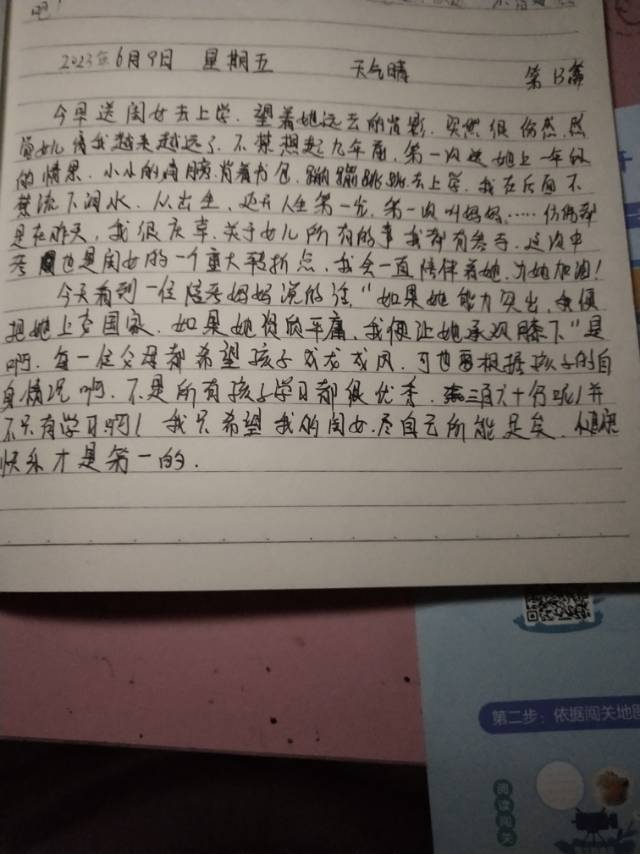 吧!
2023年6月9日 星期五 天气晴 第13篇
今早送闺女去上学.望着她远去的背影.突然很伤感.感
觉女儿离我越来越远了.不禁想起九年前,第一次送她上一年级
的情景.小小的肩膀背着书包.蹦蹦跳跳去上学.我在后面不
禁流下泪水.从出生.迈开人生第一步.第一次叫妈妈.……仿佛都
是在昨天,我很庆幸.关于女儿所有的事我都有参与.这次中
考也是闺女的一个重大转折点.我会一直陪伴着她.为她加油!
今天看到一位陪考妈妈说的话,"如果她能力突出.我便
把她上交国家.如果她资质平庸,我便让她承欢膝下"是
啊.每一位父母都希望孩子成龙成凤.可也要根据孩子的自
身情况啊.不是所有孩子学习都很优秀.三百六十行呢!并
不只有学习啊!我只希望我的闺女.尽自己所能足矣.健康
快乐才是第一的.
第二步:依据闯关地图
阅读闯关